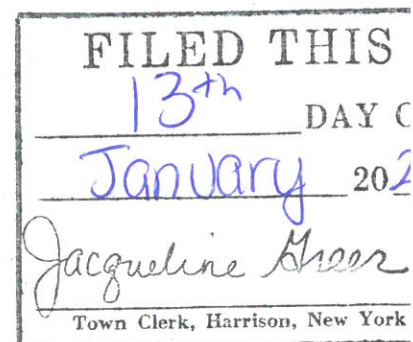 FILED THIS
13th DAY
January 202
Jacqueline Greer
Town Clerk, Harrison, New York